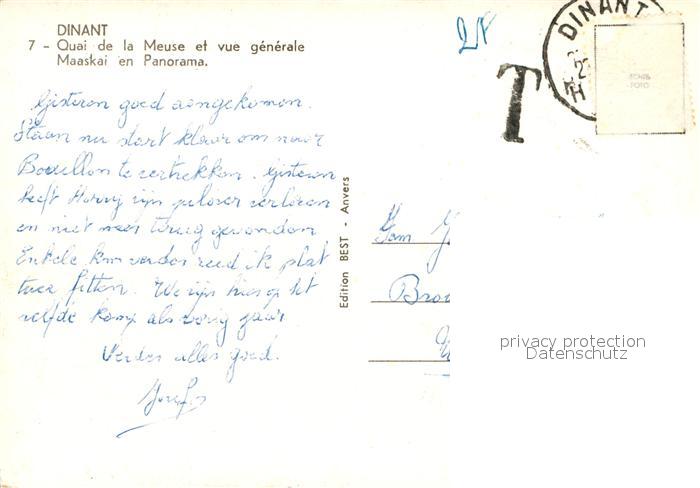 DINANT
7 - Quai de la Meuse et vue générale
Maaskai en Panorama.
Gisteren goed aangekomen.
Staan nu start klaar om naar
Bouillon te vertrekken. Gisteren
heeft Harry zijn pulover verloren
en niet meer terug gevonden
Enkele km verder reed ik plat
twee fitten. We zijn hier op het
zelfde kamp als vorig jaar
Verder alles goed.
Edition BEST - Anvers
2F
T
DINANT
ECHTES
FOTO
Fam
Brou
privacy protection
Datenschutz